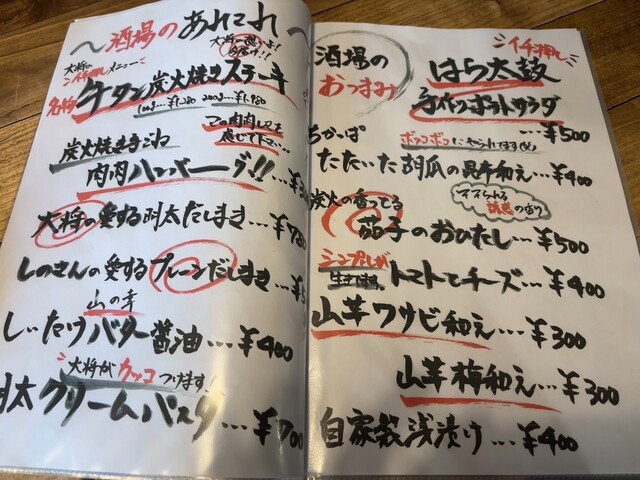 〜酒場のあれこれ〜
大将の
イチ押しメニュー
大将の想いよ!
名物 牛タン炭火焼きステーキ
100g…¥1,280 200g…¥1,980
炭火焼きまごね
この肉肉しさを
感じて下さい…
肉肉ハンバーグ!!…
大将の愛する明太だしまき…¥780
しのさんの愛するプレーンだしまき…¥5
山の幸
しいたけバター醤油…¥400
大将がカッコつけます!
明太クリームパスタ…¥700
酒場の
おつまみ
イチ押し
はら太鼓
手作りポテトサラダ
…¥500
ちかっぱ
ボッコボコにやられてます(笑)
たたいた胡瓜の昆布和え…¥400
炭火の香ってる
そそられる
誘惑の香り
茄子のおひたし…¥500
シンプルが
トマトとチーズ…¥400
山芋ワサビ和え…¥300
山芋梅和え…¥300
自家製浅漬け…¥400